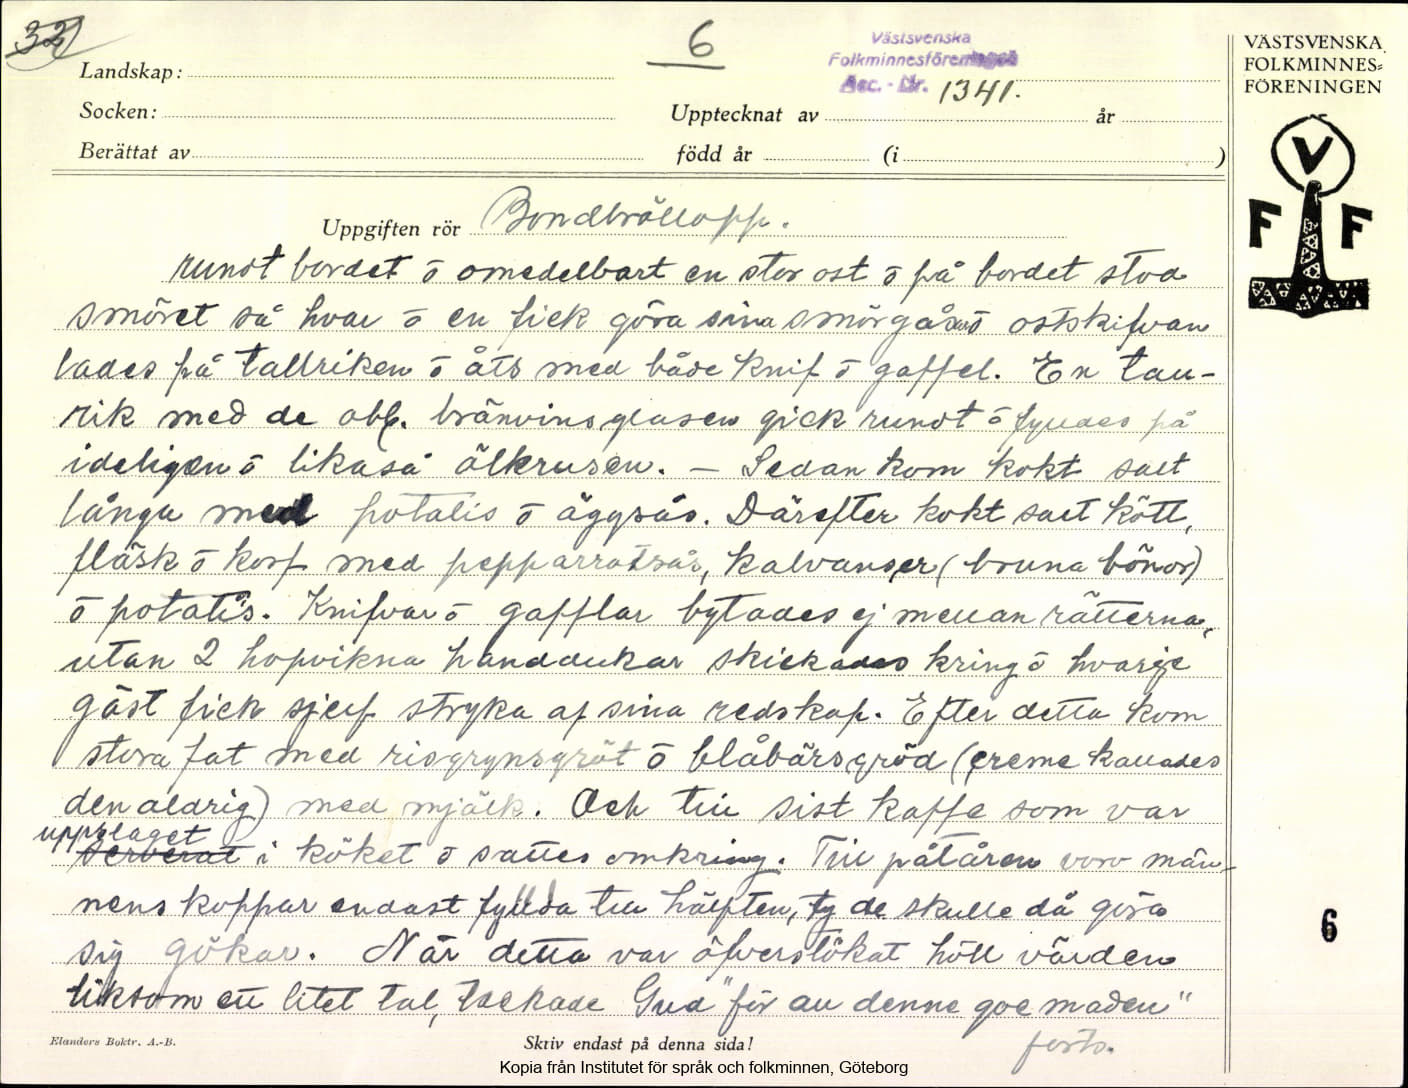 32
6
Västsvenska
Folkminnesföreningen
Acc. - Nr. 1341.
VÄSTSVENSKA
FOLKMINNES=
FÖRENINGEN
Landskap:
Socken:
Upptecknat av år
Berättat av
född år (i )
V
F F
Uppgiften rör Bondbröllopp.
rundt bordet ō omedelbart en stor ost ō på bordet stod
smöret så hvar ō en fick göra sina smörgåsar ō ostskifvan
lades på tallriken ō åts med både knif ō gaffel. En tall-
rik med de obl. bränvinsglasen gick rundt ō fylldes på
ideligen ō likaså ölkrusen. — Sedan kom kokt salt
långa med potatis ō äggsås. Därefter kokt salt kött,
fläsk ō korf med pepparrotsås, kalvanser (bruna bönor)
ō potatis. Knifvar ō gafflar bytades ej mellan rätterna,
utan 2 hopvikna handdukar skickades kring ō hvarje
gäst fick sjelf stryka af sina redskap. Efter detta kom
stora fat med risgrynsgröt ō blåbärsgröd (creme kallades
den aldrig) med mjölk. Och till sist kaffe som var
uppslaget
serverat i köket ō sattes omkring. Till påtåren voro män-
nens koppar endast fyllda till hälften, ty de skulle då göra
sig gökar. När detta var öfverstökat höll värden
liksom ett litet tal, tackade Gud "för all denne goe maden"
forts.
6
Elanders Boktr. A.-B.
Skriv endast på denna sida!
Kopia från Institutet för språk och folkminnen, Göteborg